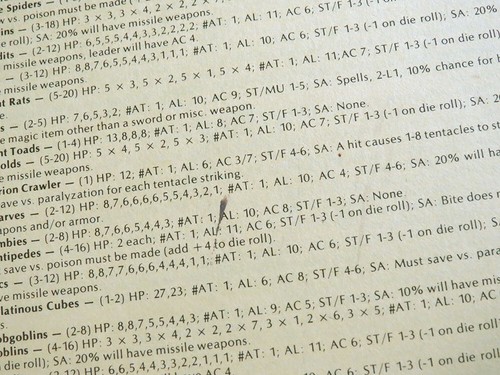 e Spiders —
vs. poison must be made (
ins — (3-18) HP: 3 × 3, 3 × 4, 2 × 2, 2 ×
e roll); SA: 20% will have missile weapons.
its — (2-12) HP: 6,5,5,5,4,4,3,3,2,2,2,2; #AT: 1; AL: 11; AC 6; ST/F 1-3 (-1 on die roll); SA: 20%
missile weapons, leader will have AC 4.
— (3-12) HP: 8,8,7,6,5,5,4,4,3,1,1,1; #AT: 1; AL: 10; AC 6; ST/F 1-3 (-1 on die
e missile weapons.
t Rats — (5-20) HP: 5 × 3, 5 × 2, 5 × 1, 5 × 4; #AT: 1; AL: 11; AC 7; ST/F 1-3 (-1 on
s — (2-5) HP: 7,6,5,3,2; #AT: 1; AL: 10; AC 9; ST/MU 1-5; SA: Spells, 2-L1, 10% chance for
e magic item other than a sword or misc. weapon.
nt Toads — (1-4) HP: 13,8,8,8; #AT: 1; AL: 8; AC 7; ST/F 1-3; SA: None.
olds — (5-20) HP: 5 × 4, 5 × 2, 5 × 3; #AT: 1; AL: 10; AC 7; ST/F 1-3 (-1 on die roll); SA:
e missile weapons.
rion Crawler — (1) HP: 12; #AT: 1; AL: 6; AC 3/7; ST/F 4-6; SA: A hit causes 1-8 tentacles to
ave vs. paralyzation for each tentacle striking.
arves — (2-12) HP: 8,7,6,6,6,5,5,5,4,3,2,1; #AT: 1; AL: 10; AC 4; ST/F 4-6; SA: 20% will ha
apons and/or armor.
mbies — (2-8) HP: 8,7,6,5,5,4,4,3; #AT: 1; AL: 10; AC 8; ST/F 1-3; SA: None.
ntipedes — (4-16) HP: 2 each; #AT: 1; AL: 11; AC 6; ST/F 1-3 (-1 on die roll); SA: Bite does
save vs. poison must be made (add +4 to die roll).
cs — (3-12) HP: 8,8,7,7,6,6,6,4,4,4,1,1; #AT: 1; AL: 10; AC 6; ST/F 1-3 (-1 on die roll); SA:
ve missile weapons.
latinous Cubes — (1-2) HP: 27,23; #AT: 1; AL: 6; AC 8; ST/F 4-6; SA: Must save vs. para
s.
obgoblins — (2-8) HP: 8,8,7,5,5,4,4,3; #AT: 1; AL: 9; AC 5; ST/F 1-3; SA: 10% will have mis
oblins — (4-16) HP: 3 × 3, 4 × 2, 2 × 7, 3 × 1, 2 × 6, 3 × 5; #AT: 1; AL: 10; AC
roll); SA: 20% will have missile weapons.
(2-12) HP: 6,5,5,5,4,4,3,3,2,2,1,1,1; #AT: 1; AL: 11; AC 6; ST/F 1-3 (-1 on die roll)
will have AC 4.